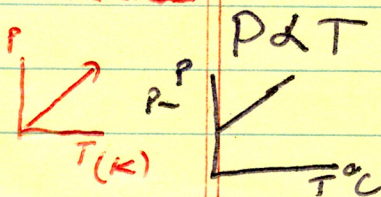 P
T(K)
P α T
P
P-
T °C